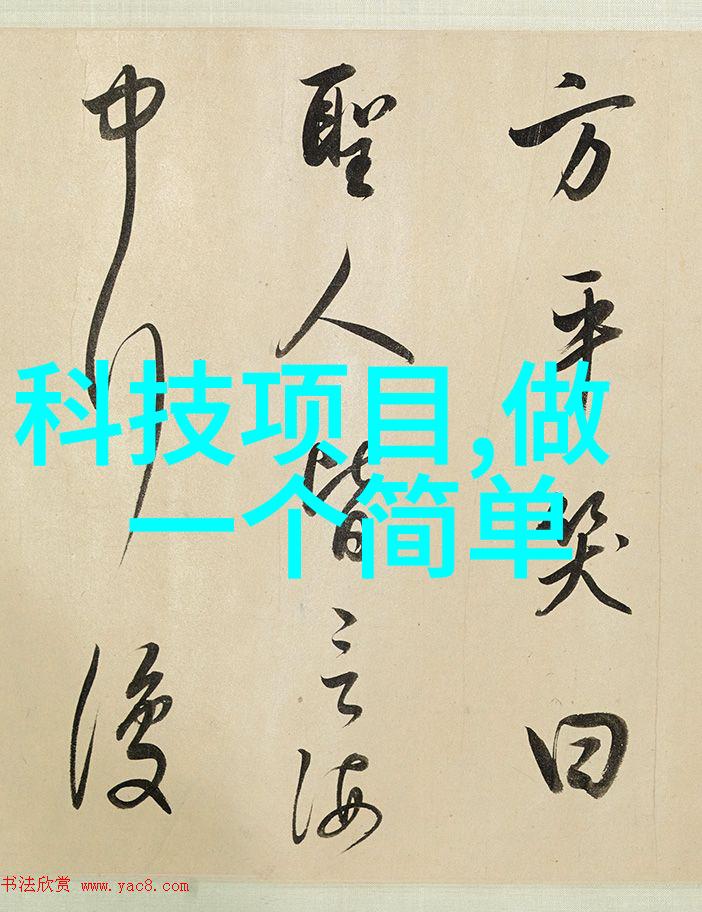 方平笑曰
聖人皆言海
中行復
科技项目,做
一个简单
书法欣赏 www.yac8.com